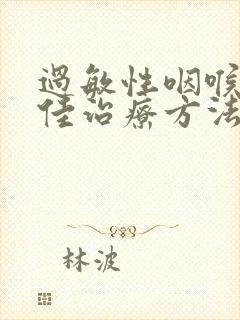 过敏性咽喉
佳治疗方法
林波